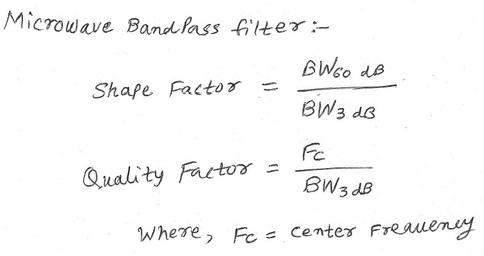 Microwave BandPass filter:-
Shape Factor = BW60 dB / BW3 dB
Quality Factor = Fc / BW3 dB
Where, Fc = Center Frequency